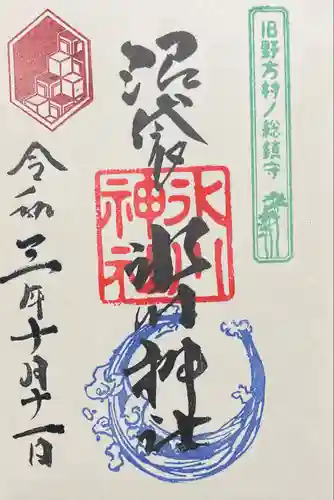 旧野方村ノ総鎮守
沼袋氷川神社
氷川神社
令和三年十月十一日